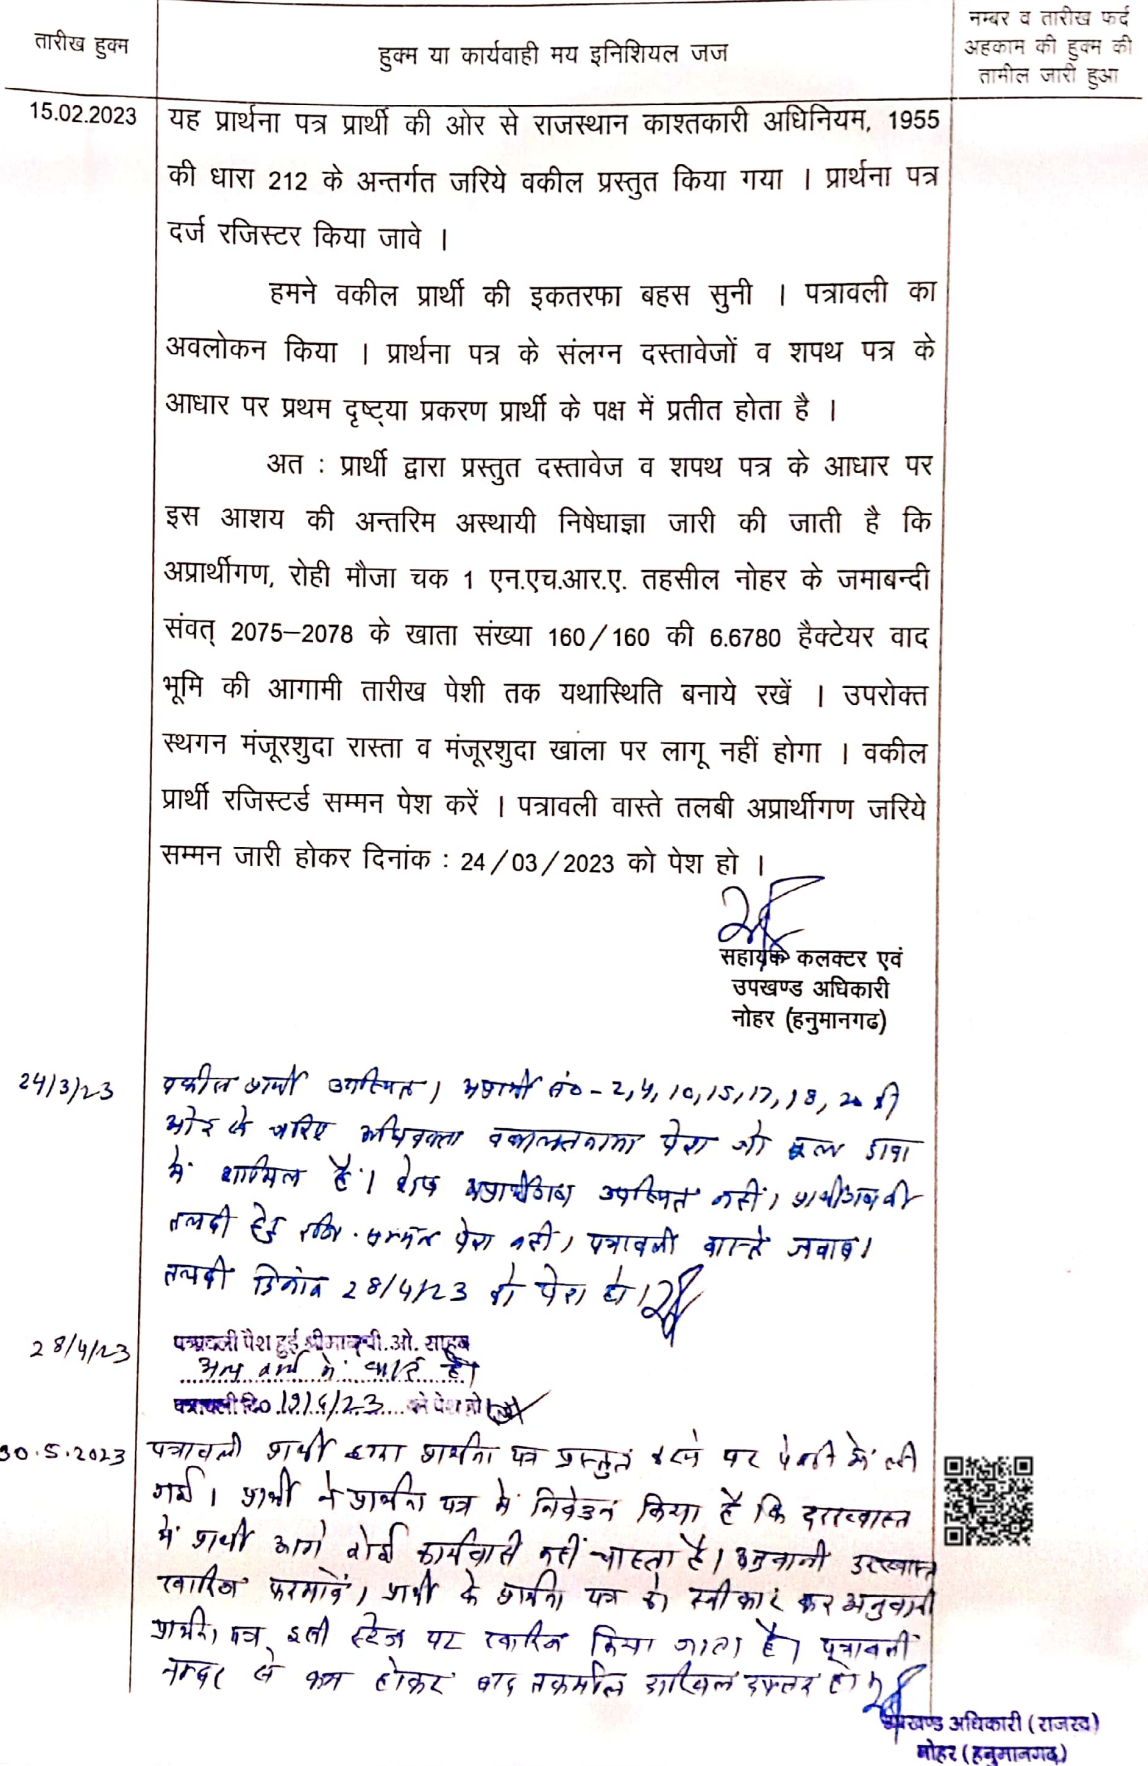 तारीख हुक्म
हुक्म या कार्यवाही मय इनिशियल जज
नम्बर व तारीख फर्द
अहकाम की हुक्म की
तामील जारी हुआ
15.02.2023
यह प्रार्थना पत्र प्रार्थी की ओर से राजस्थान काश्तकारी अधिनियम, 1955
की धारा 212 के अन्तर्गत जरिये वकील प्रस्तुत किया गया । प्रार्थना पत्र
दर्ज रजिस्टर किया जावे ।
हमने वकील प्रार्थी की इकतरफा बहस सुनी । पत्रावली का
अवलोकन किया । प्रार्थना पत्र के संलग्न दस्तावेजों व शपथ पत्र के
आधार पर प्रथम दृष्ट्या प्रकरण प्रार्थी के पक्ष में प्रतीत होता है ।
अत : प्रार्थी द्वारा प्रस्तुत दस्तावेज व शपथ पत्र के आधार पर
इस आशय की अन्तरिम अस्थायी निषेधाज्ञा जारी की जाती है कि
अप्रार्थीगण, रोही मौजा चक 1 एन.एच.आर.ए. तहसील नोहर के जमाबन्दी
संवत् 2075–2078 के खाता संख्या 160/160 की 6.6780 हैक्टेयर वाद
भूमि की आगामी तारीख पेशी तक यथास्थिति बनाये रखें । उपरोक्त
स्थगन मंजूरशुदा रास्ता व मंजूरशुदा खाला पर लागू नहीं होगा । वकील
प्रार्थी रजिस्टर्ड सम्मन पेश करें । पत्रावली वास्ते तलबी अप्रार्थीगण जरिये
सम्मन जारी होकर दिनांक : 24/03/2023 को पेश हो ।
सहायक कलक्टर एवं
उपखण्ड अधिकारी
नोहर (हनुमानगढ)
24/3/23
वकील प्रार्थी उपस्थित। अप्रार्थी सं० - 2, 4, 10, 15, 17, 18, 20 की
ओर से जरिए अधिवक्ता वकालतनामा पेश जो मूल दावा
में शामिल है। शेष अप्रार्थीगण उपस्थित नहीं।
तलबी हेतु रजि. सम्मन पेश नहीं। पत्रावली वास्ते जवाब।
तलबी दिनांक 28/4/23 को पेश हो।
28/4/23
पत्रावली पेश हुई श्रीमान् पी.ओ. साहब
अन्य कार्य में व्यस्त है।
पत्रावली दि० 19/6/23 को पेश हो
30.5.2023
पत्रावली प्रार्थी द्वारा प्रार्थना पत्र प्रस्तुत करने पर पेशी में ली
गई। प्रार्थी ने प्रार्थना पत्र में निवेदन किया है कि दरख्वास्त
में प्रार्थी आगे कोई कार्यवाही नहीं चाहता है। दरख्वास्त
खारिज फरमावें। प्रार्थी के प्रार्थना पत्र को स्वीकार कर
प्रार्थना पत्र इसी स्टेज पर खारिज किया जाता है। पत्रावली
नम्बर से कम होकर बाद तकमील दाखिल दफ्तर हो।
उपखण्ड अधिकारी (राजस्व)
नोहर (हनुमानगढ़)